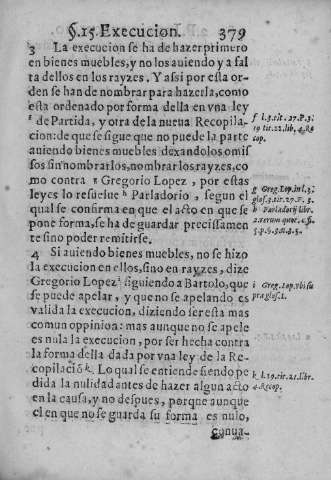 §.15. Execucion. 379
3 La execucion se ha de hazer primero
en bienes muebles, y no los auiendo y a fal
ta dellos en los rayzes. Y assi por esta or-
den se han de nombrar para hazerla, como
esta ordenado por forma della en vna ley
f de Partida, y otra de la nueua Recopila-
cion: de que se sigue que no puede la parte
auiendo bienes muebles dexandolos omis
sos sin nombrarlos, nombrar los rayzes, co
mo contra g Gregorio Lopez, por estas
leyes lo resuelue h Parladorio, segun el
qual se confirma en que el acto en que se
pone forma, se ha de guardar precissamen
te sino poder remitirse.
4 Si auiendo bienes muebles, no se hizo
la execucion en ellos, sino en rayzes, dize
Gregorio Lopez i siguiendo a Bartolo, que
se puede apelar, y que no se apelando es
valida la execucion, diziendo ser esta mas
comun oppinion: mas aunque no se apele
es nula la execucion, por ser hecha contra
la forma della dada por vna ley de la Re-
copilació k. Lo qual se entiende siendo pe
dida la nulidad antes de hazer algun acto
en la causa, y no despues, porque aunque
el en que no se guarda su forma es nulo,
conua-
f l.3.tit.27.P.3.
tit.21.lib.4.Re
cop.
g Greg.Lop.in l.3.
glos.3.tit.27.P.3.
h Parladorij libr.
2.rerum quot.c.fi.
5.p.§.3.
i Greg.Lop.vbi su
pra glos.1.
k l.19.tit.21.libr.
4.Recop.